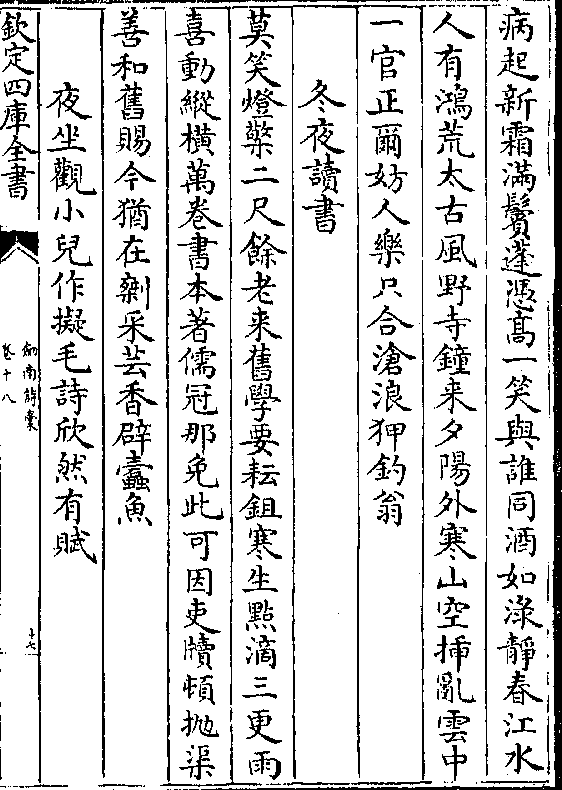 病起新霜滿鬢蓬憑髙一笑與誰同酒如渌靜春江水
人有鴻荒太古風野寺鐘来夕陽外寒山空插亂雲中
一官正爾妨人樂只合滄浪狎釣翁
冬夜讀書
莫笑燈檠二尺餘老来舊學要耘鉏寒生點滴三更雨
喜動縱横萬卷書本著儒冠那免此可因吏牘頓抛渠
善和舊賜今猶在剩采芸香辟蠧魚
夜坐觀小兒作擬毛詩欣然有賦
欽定四庫全書
劍南詩稾
卷十八
十六